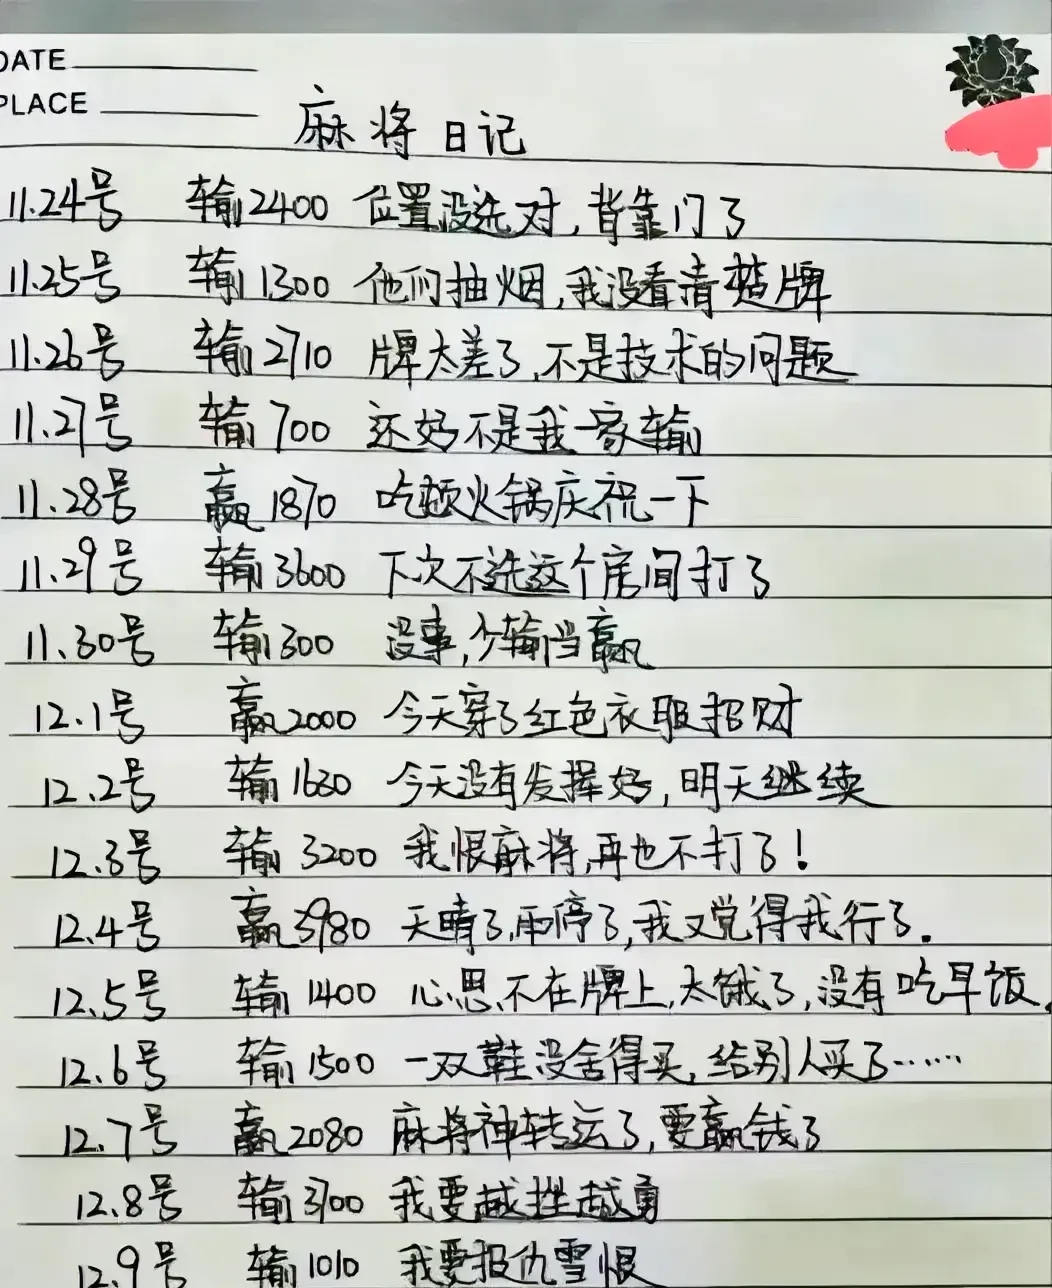 DATE
PLACE
麻将日记
11.24号 输2400 位置没选对,背靠门了
11.25号 输1300 他们抽烟,我没看清楚牌
11.26号 输2710 牌太差了,不是技术的问题
11.27号 输700 还好不是我一家输
11.28号 赢1870 吃顿火锅庆祝一下
11.29号 输3600 下次不选这个房间打了
11.30号 输300 没事,少输当赢
12.1号 赢2000 今天穿了红色衣服招财
12.2号 输1630 今天没有发挥好,明天继续
12.3号 输3200 我恨麻将,再也不打了!
12.4号 赢3980 天晴了,雨停了,我又觉得我行了.
12.5号 输1400 心思不在牌上,太饿了,没有吃早饭.
12.6号 输1500 一双鞋没舍得买,给别人买了……
12.7号 赢2080 麻将神转运了,要赢钱了
12.8号 输3700 我要越挫越勇
12.9号 输1010 我要报仇雪恨